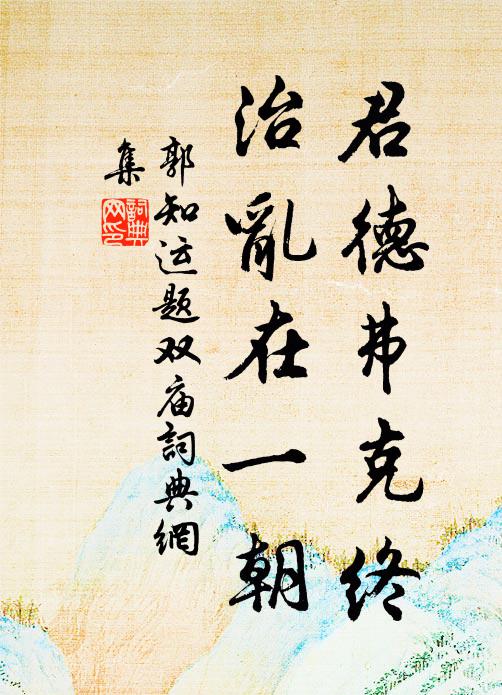 君德弗克终
治亂在一朝
郭知运题双庙詞典網
集
詞典网印